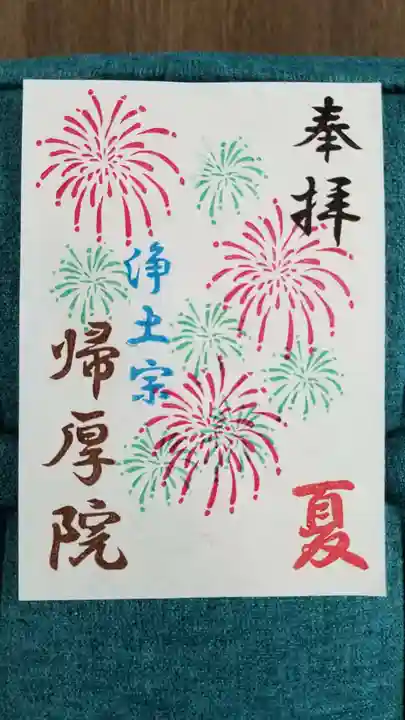 奉拝
夏
浄土宗
帰厚院